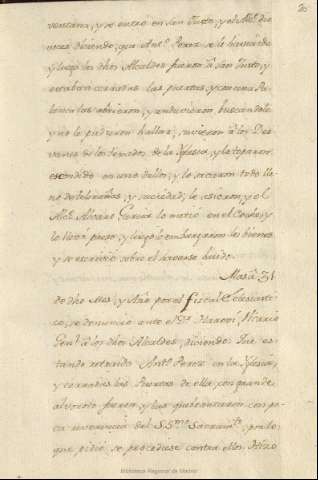 20
ventana, y se entró en San Justo, y el Alc.e dio
vozes diciendo, que Ant.o Perez se le
y luego los dhos Alcaldes fueron á San Justo, y
estaban cerradas las puertas, y con una Pa-
lanca las abrieron, y anduvieron buscandole
y no le pudieron hallar, subieron á los Des-
vanes de los texados de la Yglesia, y le toparon
escondido en uno dellos, y lo sacaron todo lle-
no de telarañas, y suciedad, le asieron, y el
Alc.e Alvaro Garcia lo metió en el Coche, y
lo llevó preso, y luego le embargaron los bienes
y se escrivió sobre el haverse huido.
Mas á 31
de dho Mes, y Año por el fiscal Eclesiasti-
co, se denunció ante el Vicario
Gen.l á los dhos Alcaldes, diciendo que es-
tando retraido Ant.o Perez en la Yglesia,
y cerradas las Puertas de ella, con grande
alvoroto fueron, y las quebrantaron con po-
ca reverencia del SS.mo Sacram.to, por lo
que pidió, se procediese contra ellos. Hizo
Biblioteca Regional de Madrid